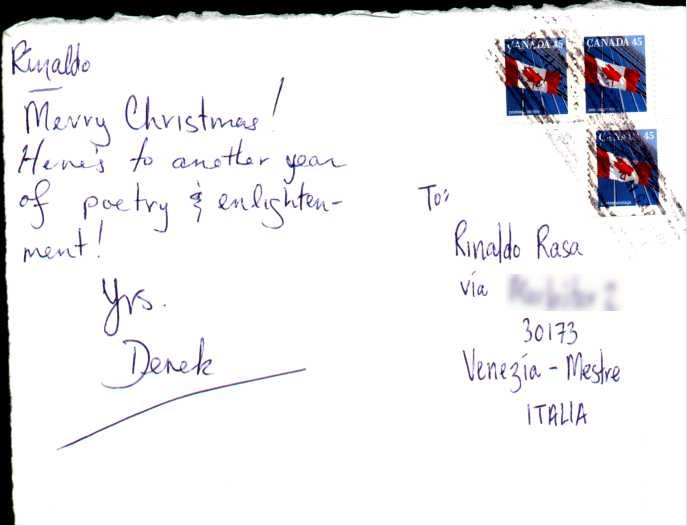 Rinaldo
Merry Christmas!
Here's to another year
of poetry & enlighten-
ment!
Yrs.
Derek
CANADA 45
CANADA 45
CANADA 45
To:
Rinaldo Rasa
via
30173
Venezia - Mestre
ITALIA